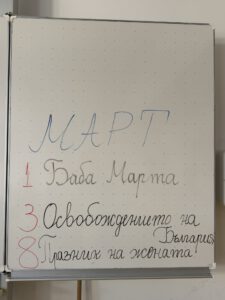 МАРТ
1 Баба Марта
3 Освобождението на
България
8 Празник на жената